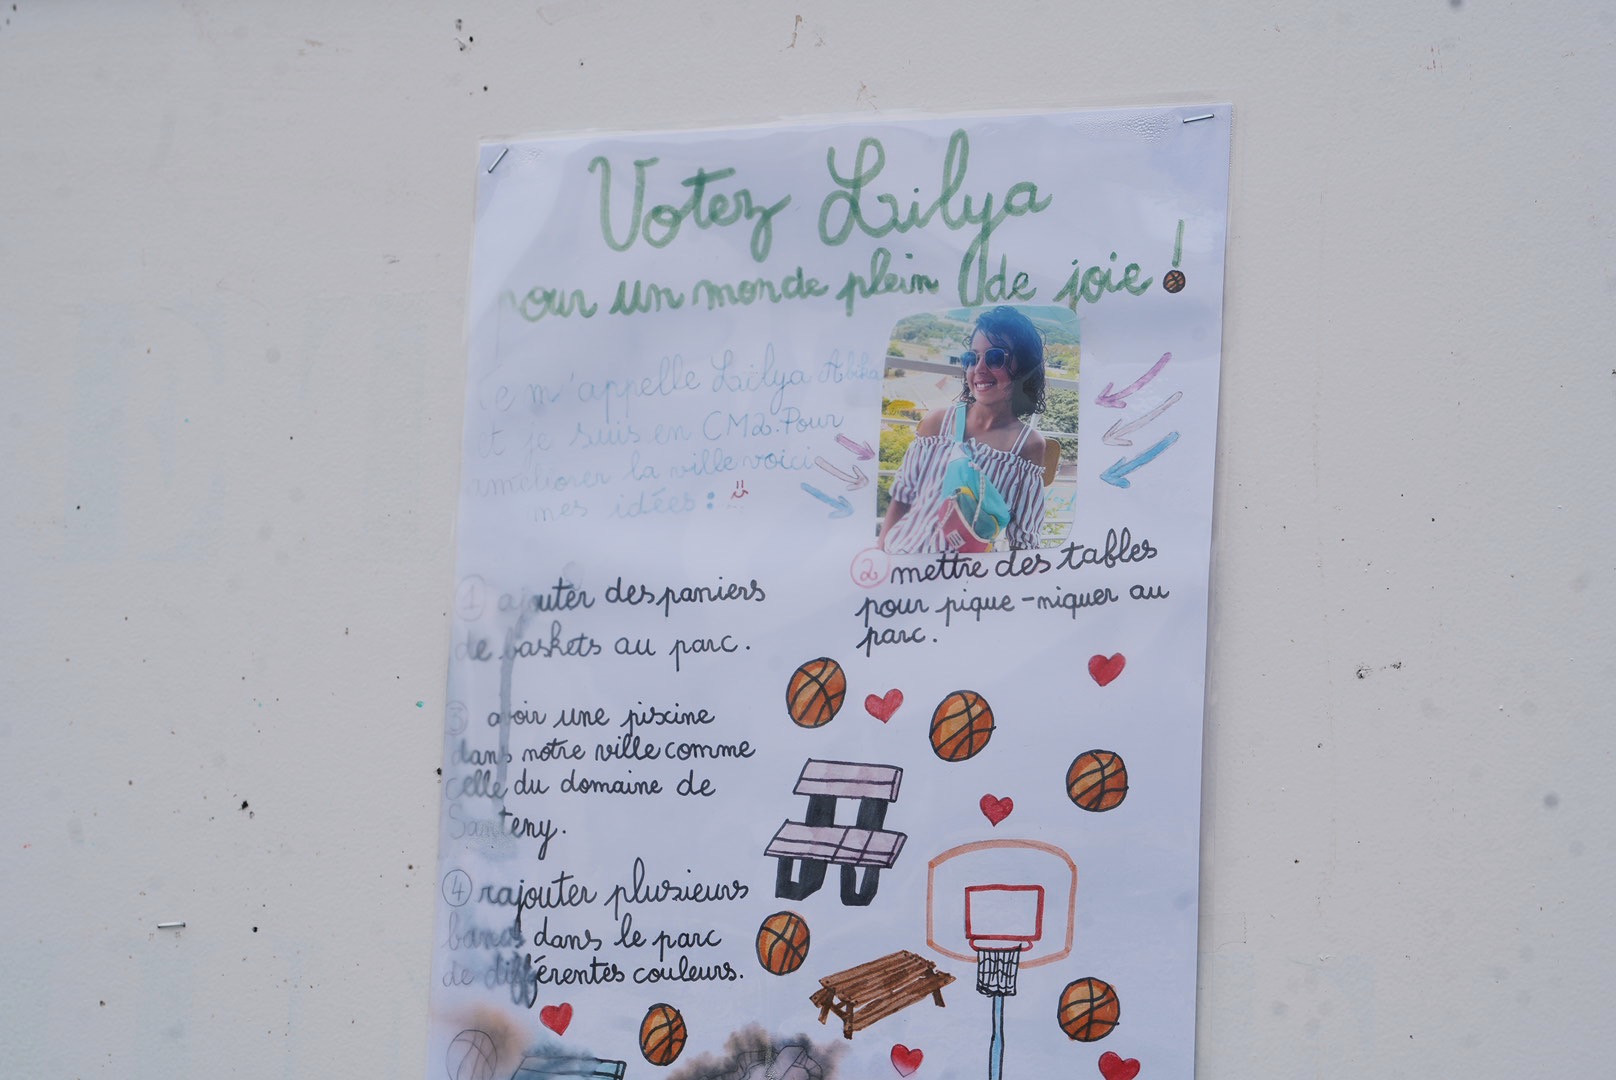 Votez Lilya
pour un monde plein de joie !
Je m'appelle Lilya
et je suis en CM2. Pour
améliorer la ville voici
mes idées :
1 ajouter des paniers
de baskets au parc.
2 mettre des tables
pour pique-niquer au
parc.
3 avoir une piscine
dans notre ville comme
celle du domaine de
Santeny.
4 rajouter plusieurs
bancs dans le parc
de différentes couleurs.